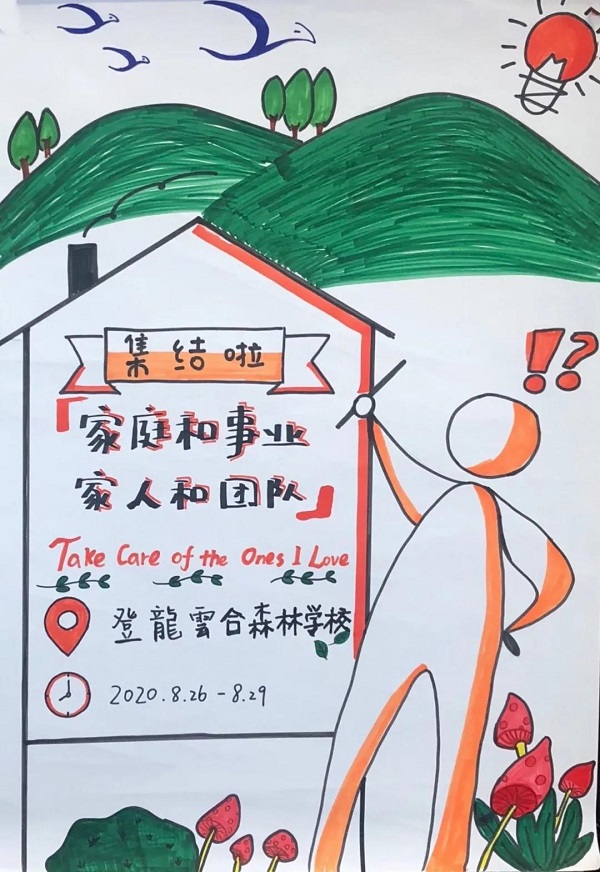 !?
集结啦
「家庭和事业
家人和团队」
Take Care of the Ones I Love
登龍雲合森林学校
2020.8.26-8.29